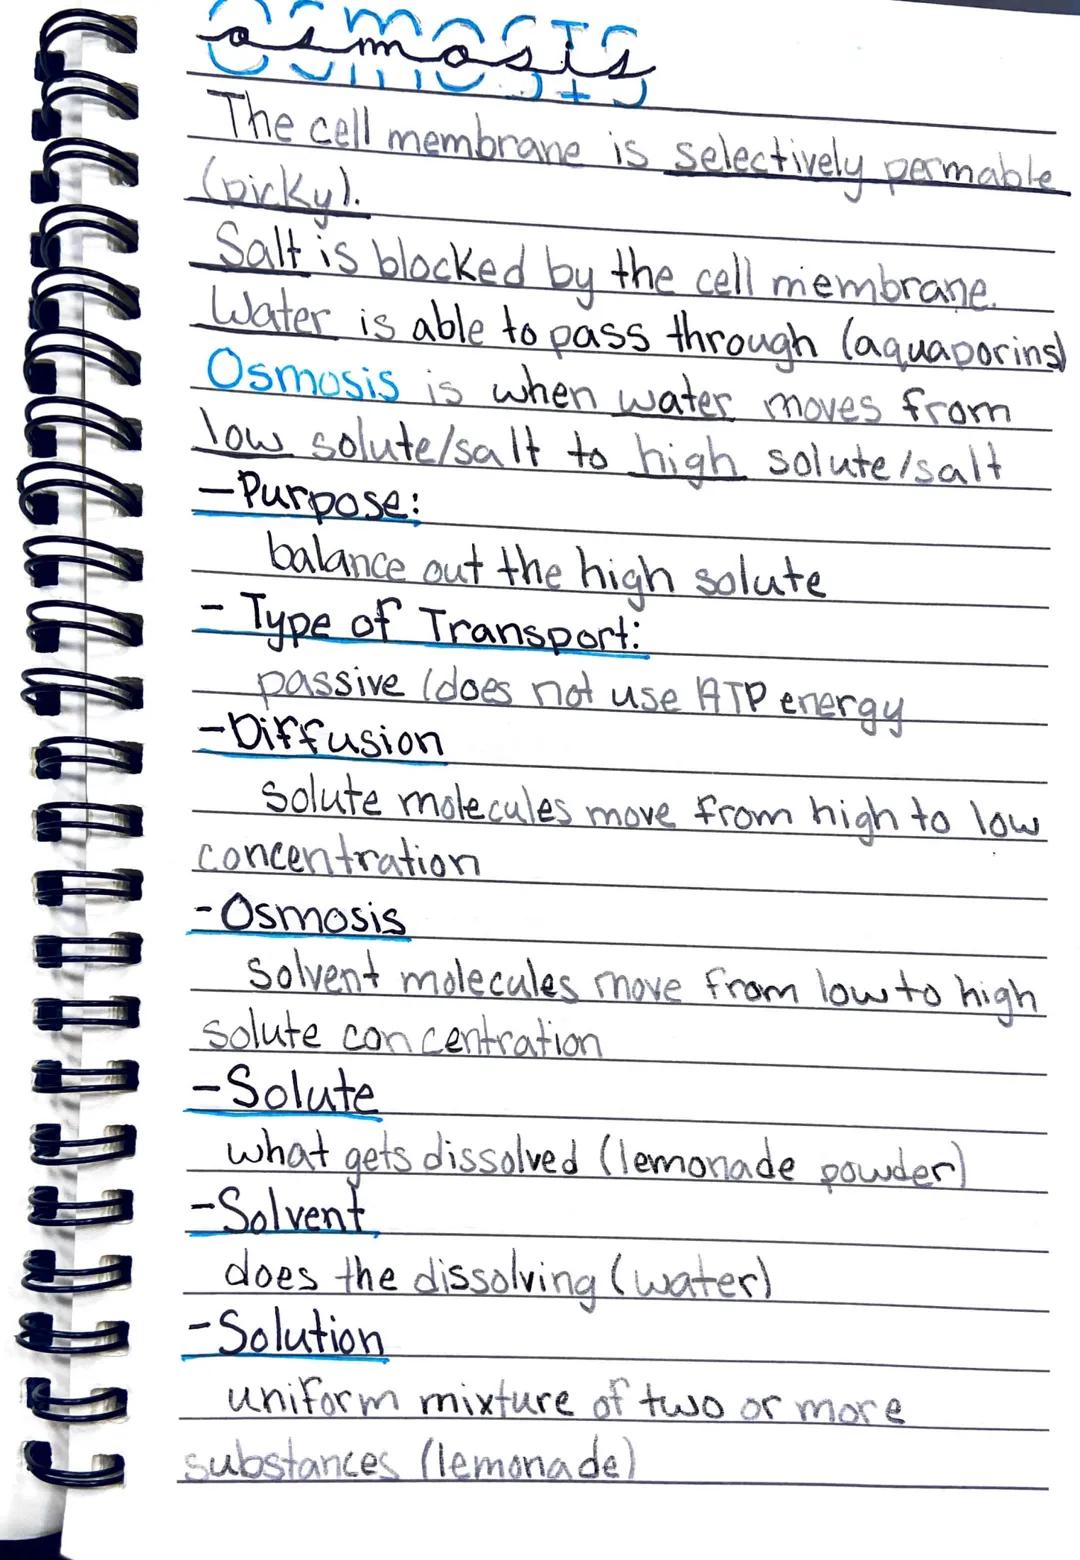 osmosis
The cell membrane is selectively permable
(picky).
Salt is blocked by the cell membrane.
Water is able to pass through (aquaporins)
Osmosis is when water moves from
low solute/salt to high solute/salt
-Purpose:
balance out the high solute
- Type of Transport:
passive (does not use ATP energy
-Diffusion
solute molecules move from high to low
concentration
-Osmosis
solvent molecules move from low to high
solute concentration
-Solute
what gets dissolved (lemonade powder)
-Solvent
does the dissolving (water)
-Solution
uniform mixture of two or more
substances (lemonade)